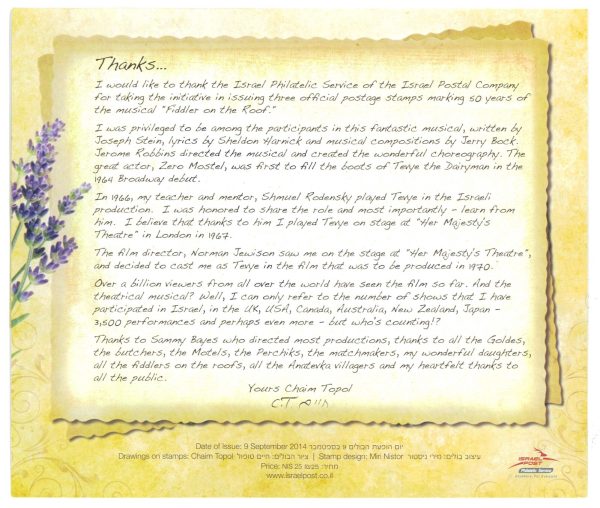 Thanks...
I would like to thank the Israel Philatelic Service of the Israel Postal Company
for taking the initiative in issuing three official postage stamps marking 50 years of
the musical "Fiddler on the Roof."
I was privileged to be among the participants in this fantastic musical, written by
Joseph Stein, lyrics by Sheldon Harnick and musical compositions by Jerry Bock.
Jerome Robbins directed the musical and created the wonderful choreography. The
great actor, Zero Mostel, was first to fill the boots of Tevye the Dairyman in the
1964 Broadway debut.
In 1966, my teacher and mentor, Shmuel Rodensky played Tevye in the Israeli
production. I was honored to share the role and most importantly - learn from
him. I believe that thanks to him I played Tevye on stage at "Her Majesty's
Theatre" in London in 1967.
The film director, Norman Jewison saw me on the stage at "Her Majesty's Theatre",
and decided to cast me as Tevye in the film that was to be produced in 1970.
Over a billion viewers from all over the world have seen the film so far. And the
theatrical musical? Well, I can only refer to the number of shows that I have
participated in Israel, in the UK, USA, Canada, Australia, New Zealand, Japan -
3,500 performances and perhaps even more - but who's counting!?
Thanks to Sammy Bayes who directed most productions, thanks to all the Goldes,
the butchers, the Motels, the Perchiks, the matchmakers, my wonderful daughters,
all the fiddlers on the roofs, all the Anatevka villagers and my heartfelt thanks to
all the public.
Yours Chaim Topol
C.T חיים
Date of Issue: 9 September 2014 יום הופעת הבולים 9 בספטמבר
Drawings on stamps: Chaim Topol ציור הבולים: חיים טופול | Stamp design: Miri Nistor עיצוב בולים: מירי ניסטור
Price: NIS 25 מחיר: 25 ₪
www.israelpost.co.il
ISRAEL
POST
Philatelic Service